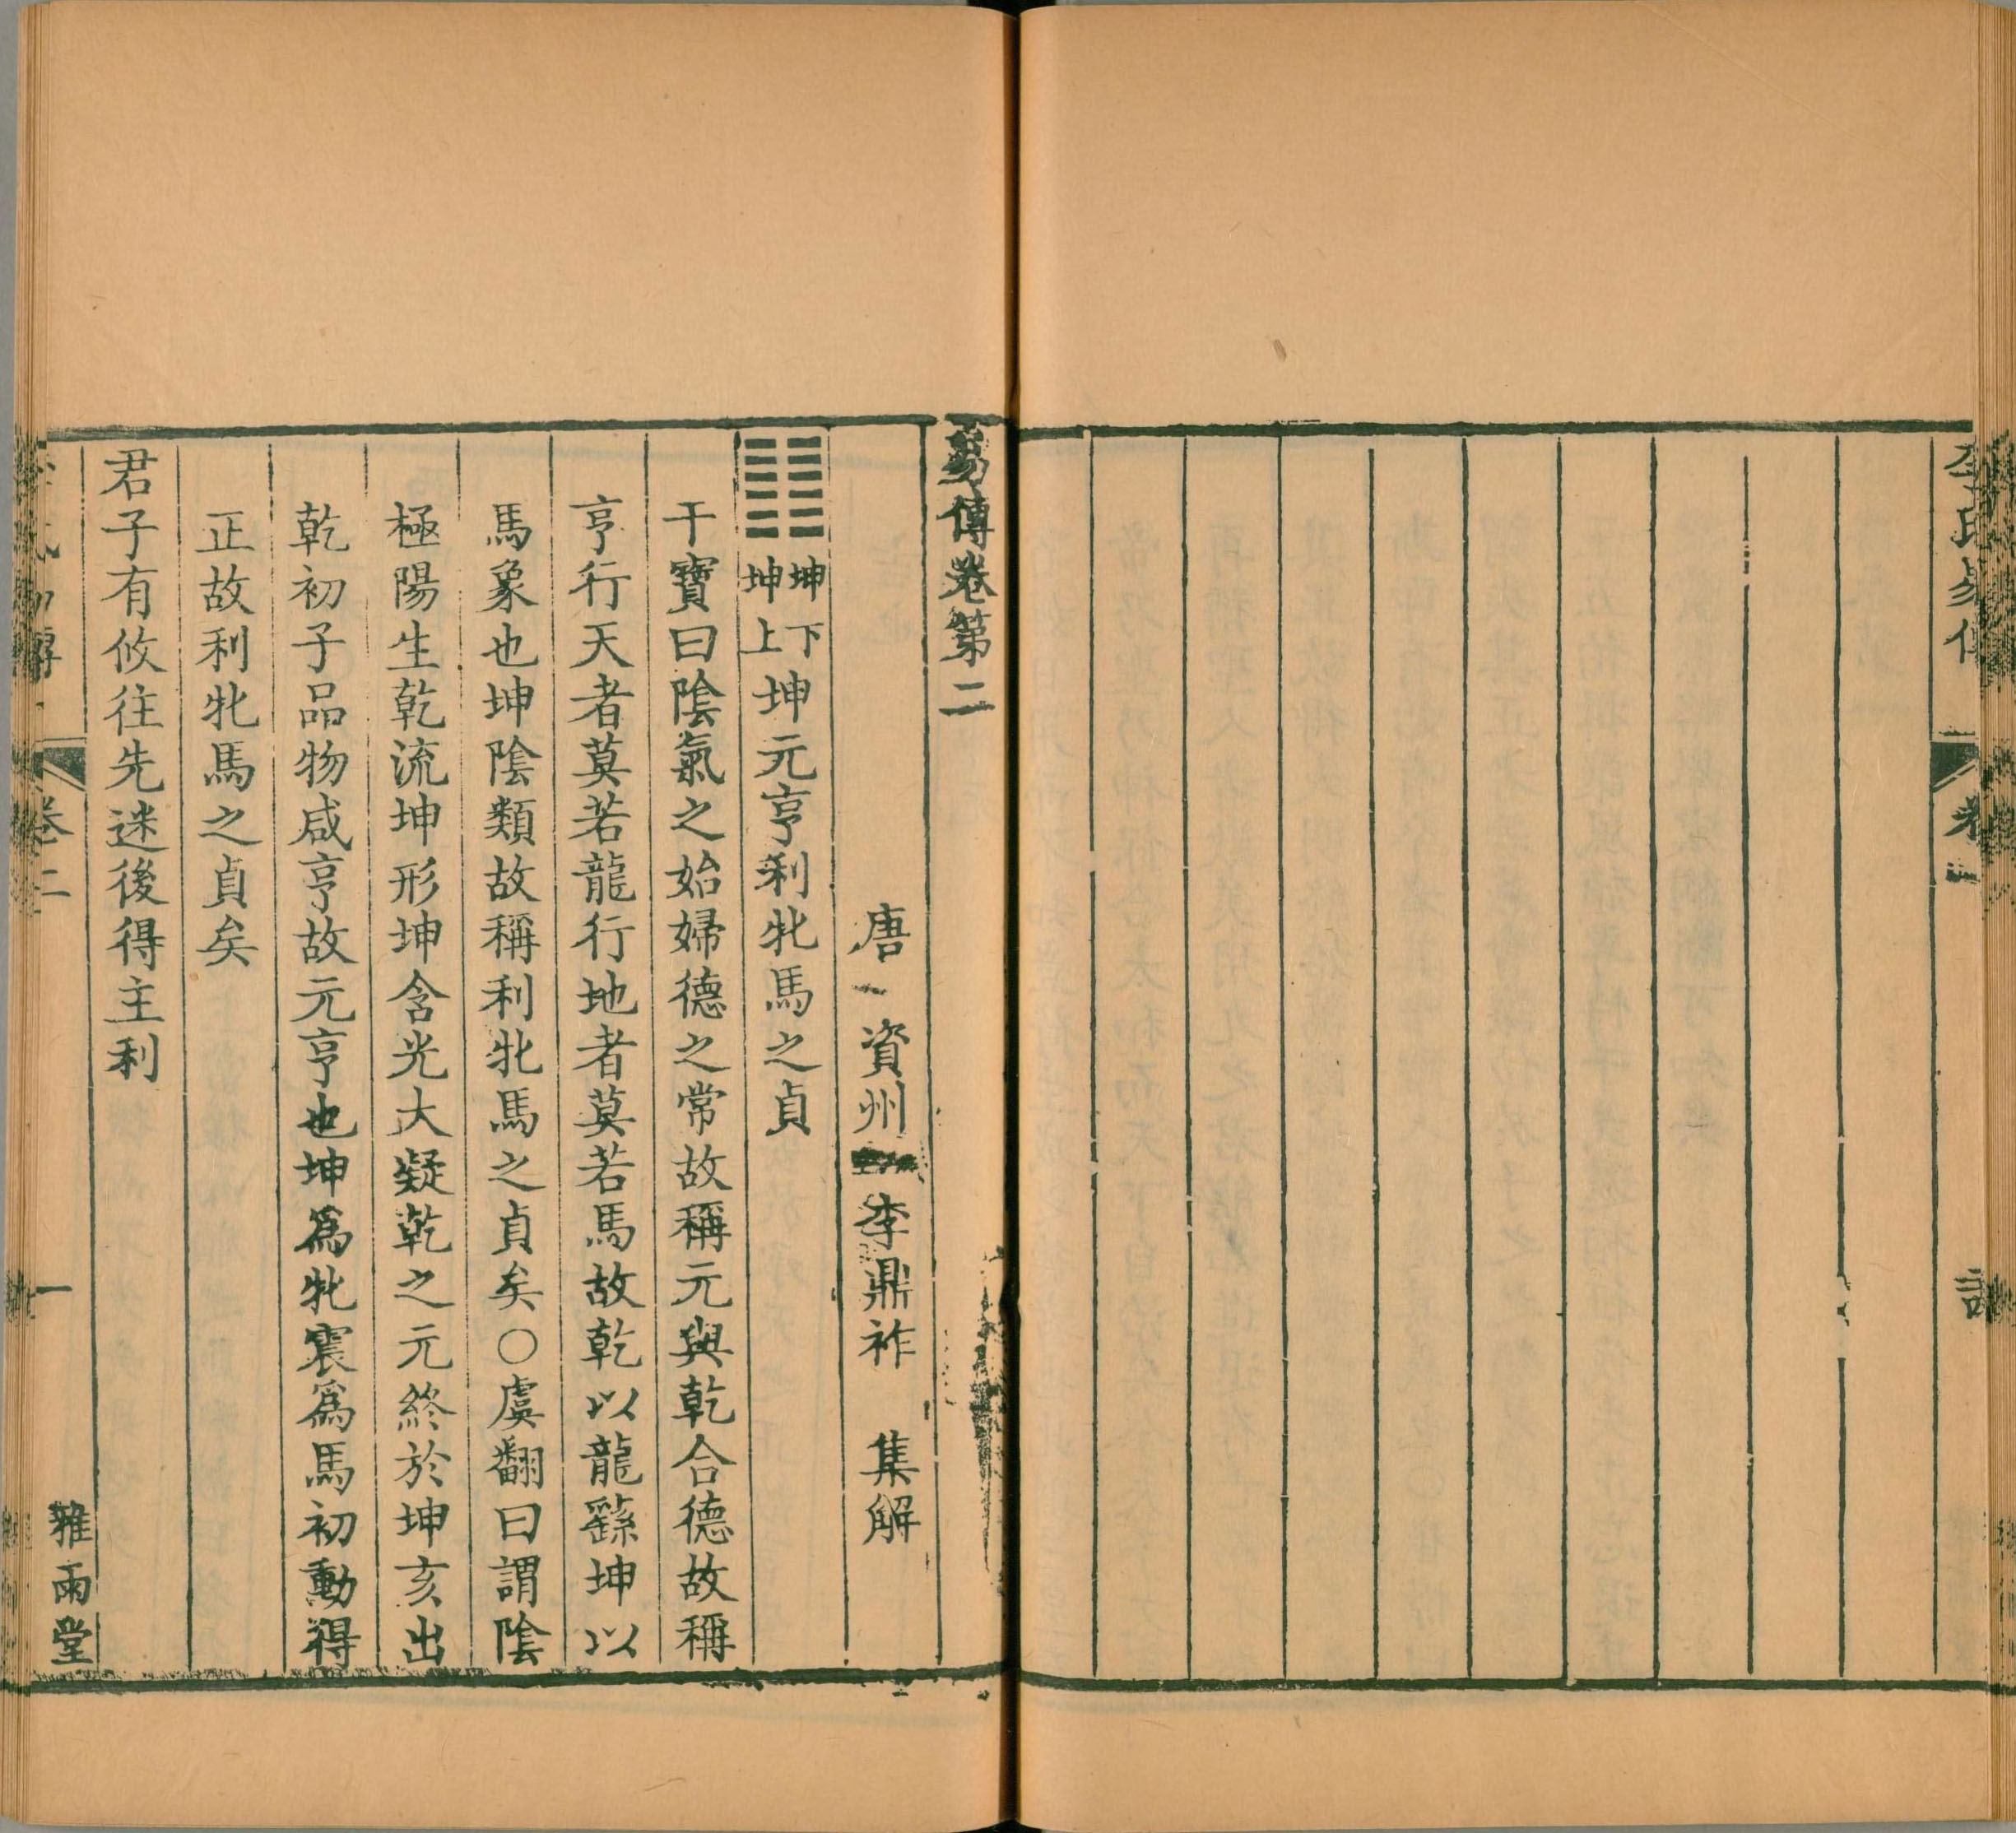 易傳卷第二
唐 資州 李鼎祚 集解
䷁坤下坤上坤元亨利牝馬之貞
干寶曰陰氣之始婦德之常故稱元與乾合德故稱
亨行天者莫若龍行地者莫若馬故乾以龍繇坤以
馬象也坤陰類故稱利牝馬之貞矣○虞翻曰謂陰
極陽生乾流坤形坤含光大凝乾之元終於坤亥出
乾初子品物咸亨故元亨也坤爲牝震爲馬初動得
正故利牝馬之貞矣
君子有攸往先迷後得主利
卷二
一
雅雨堂